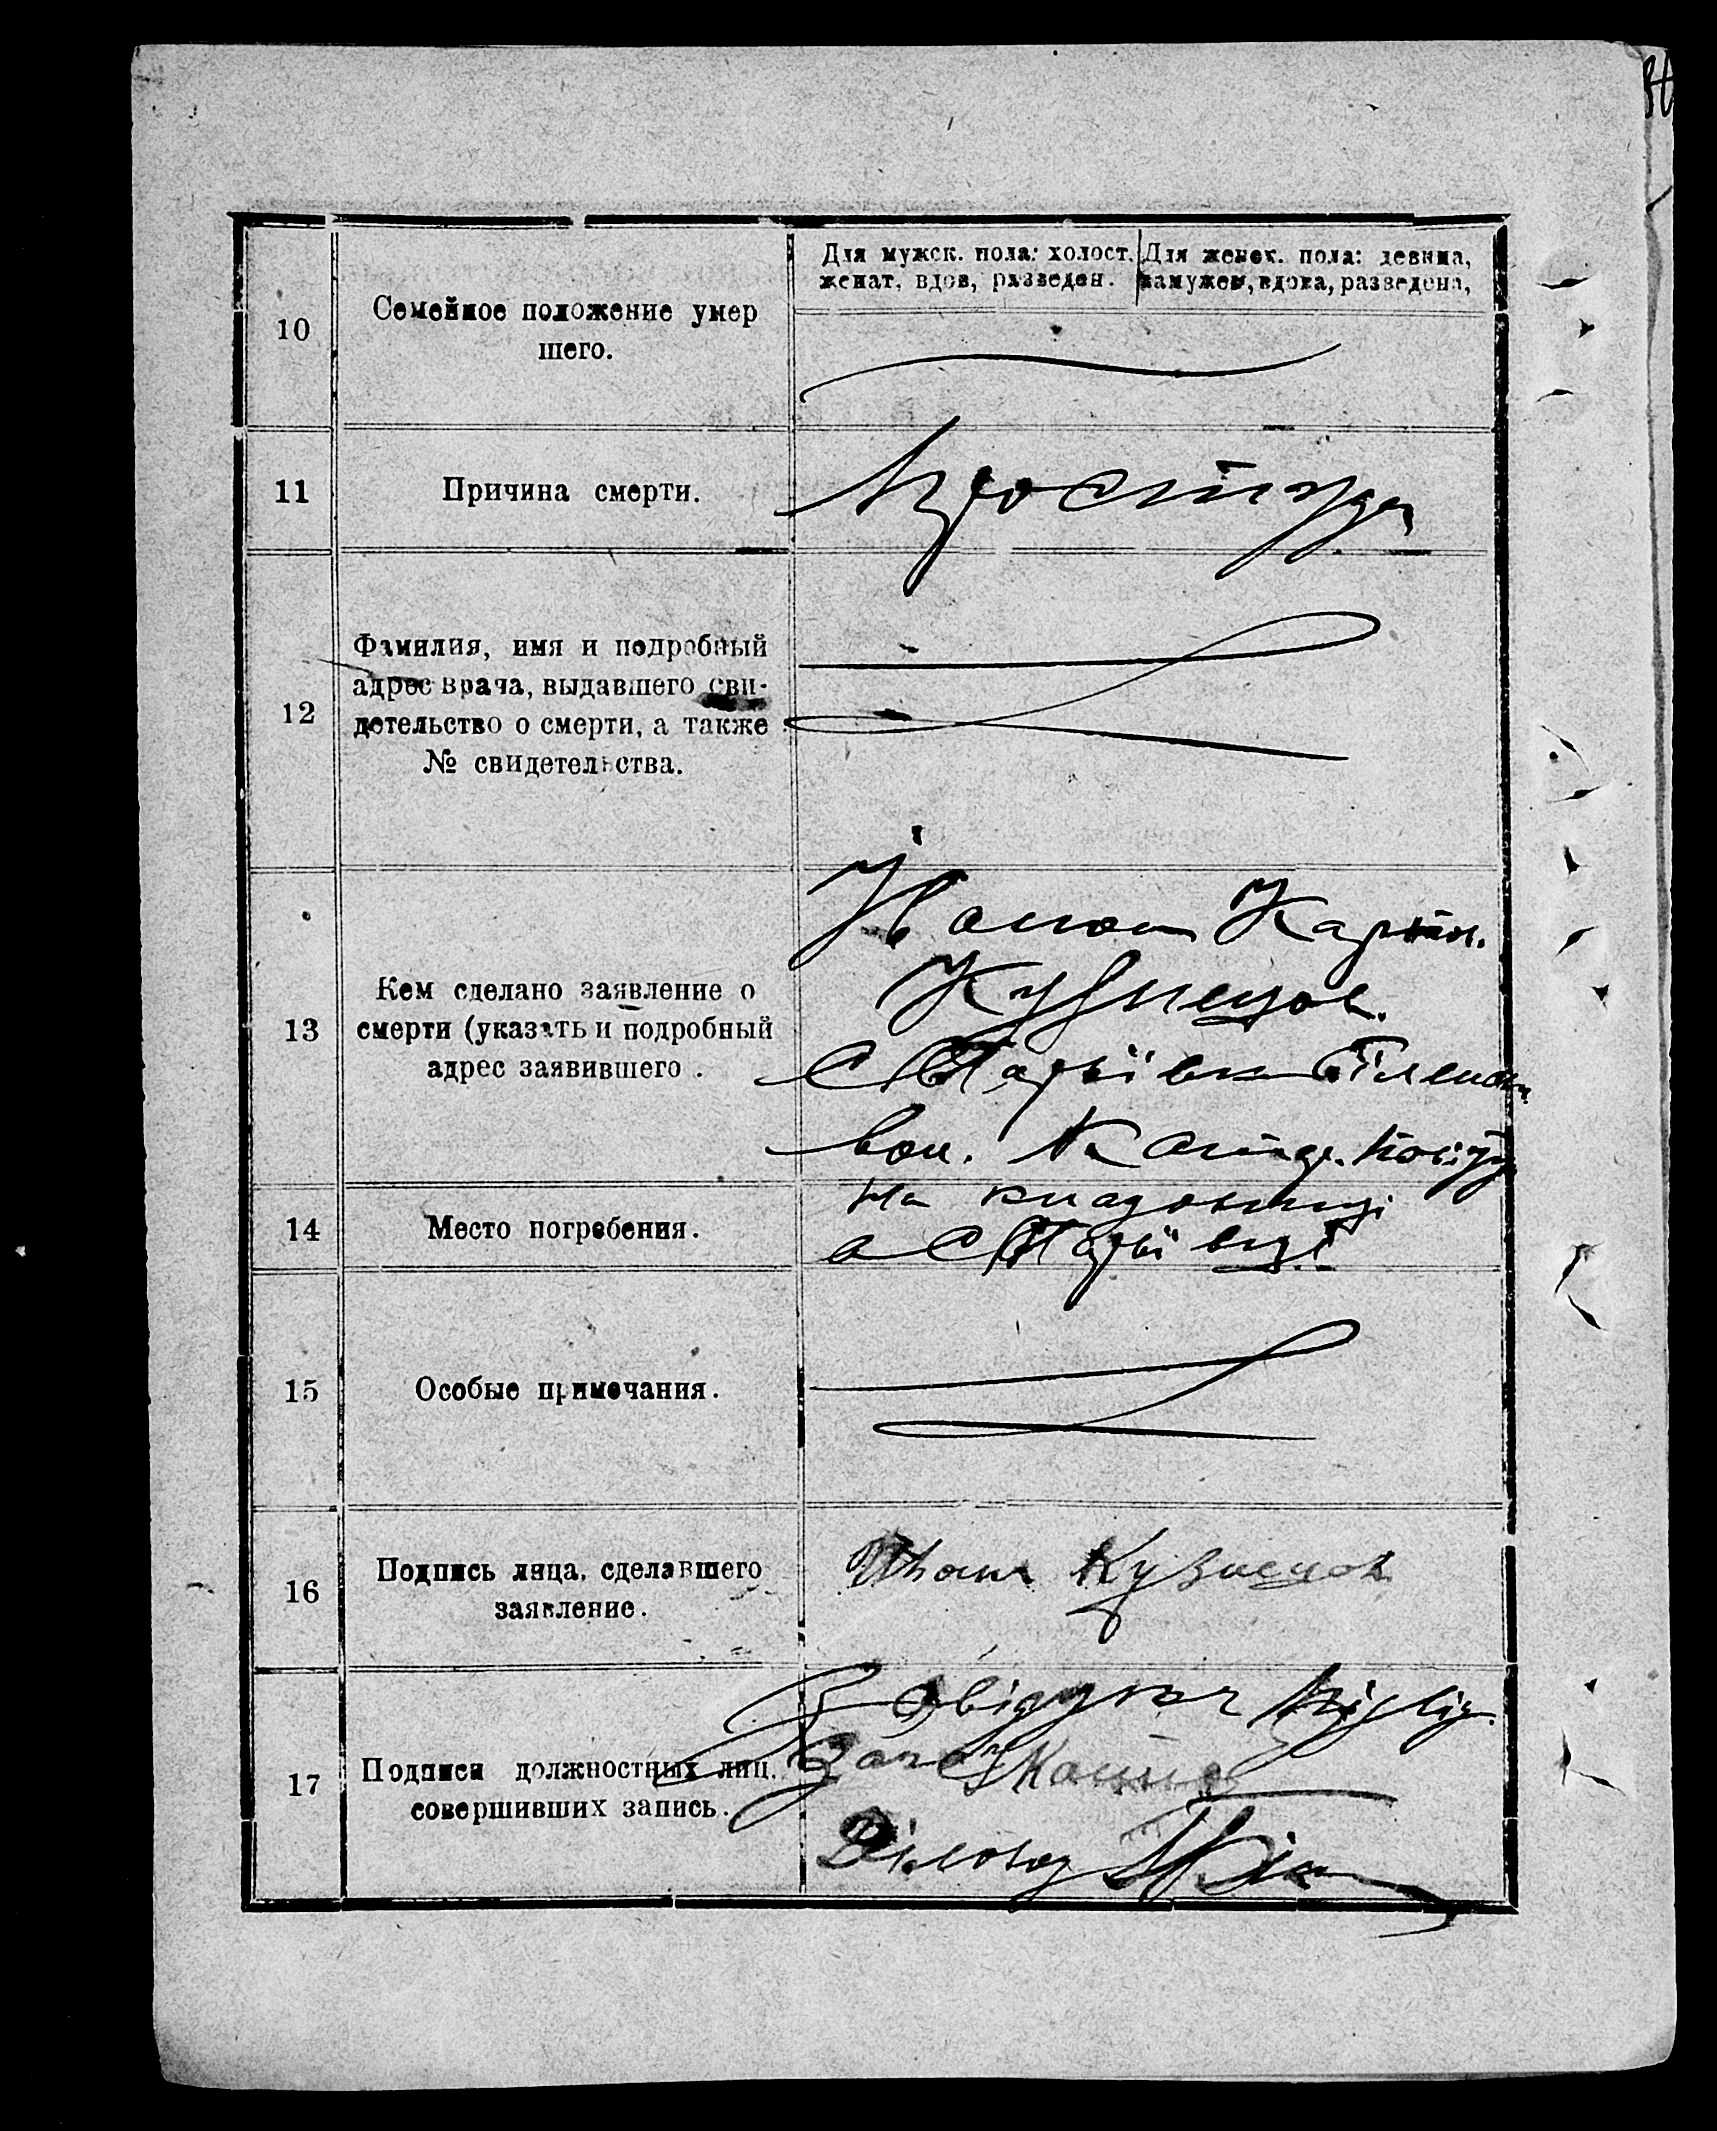 Для мужск. пола: холост. женат, вдов, разведен.
Для женск. пола: девица, замужем, вдова, разведена,
10
Семейное положение умер
шего.
11
Причина смерти.
простуда
12
Фамилия, имя и подробный
адрес врача, выдавшего сви-
детельство о смерти, а также
№ свидетельства.
13
Кем сделано заявление о
смерти (указать и подробный
адрес заявившего .
Кузнецов.
вол.
14
Место погребения.
на кладовищі
15
Особые примечания.
16
Подпись лица, сделавшего
заявление.
Иван Кузнецов
17
Подписи должностных лиц,
совершивших запись.
Завідуюч
Діловод